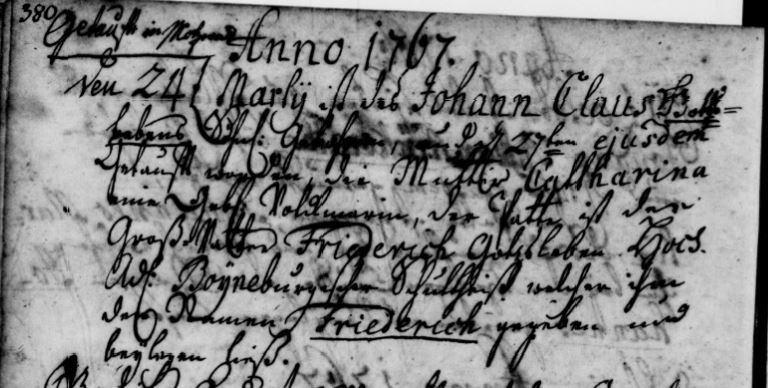 380
Getauft in Mohra
Anno 1767.
den 24 Martÿ ist des Johann Claus Gott=
lebens Sohn: Gebohren, und d 27ten ejusdem
Getauft worden, die Mutter Catharina
eine Geb: Volckmarin, der Patte ist der
Groß Vatter Friederich Gotsleben Hoch
Adl: Boÿneburgischer Schultheiß welcher ihm
den Namen Friederich gegeben und
beÿlegen hieß.